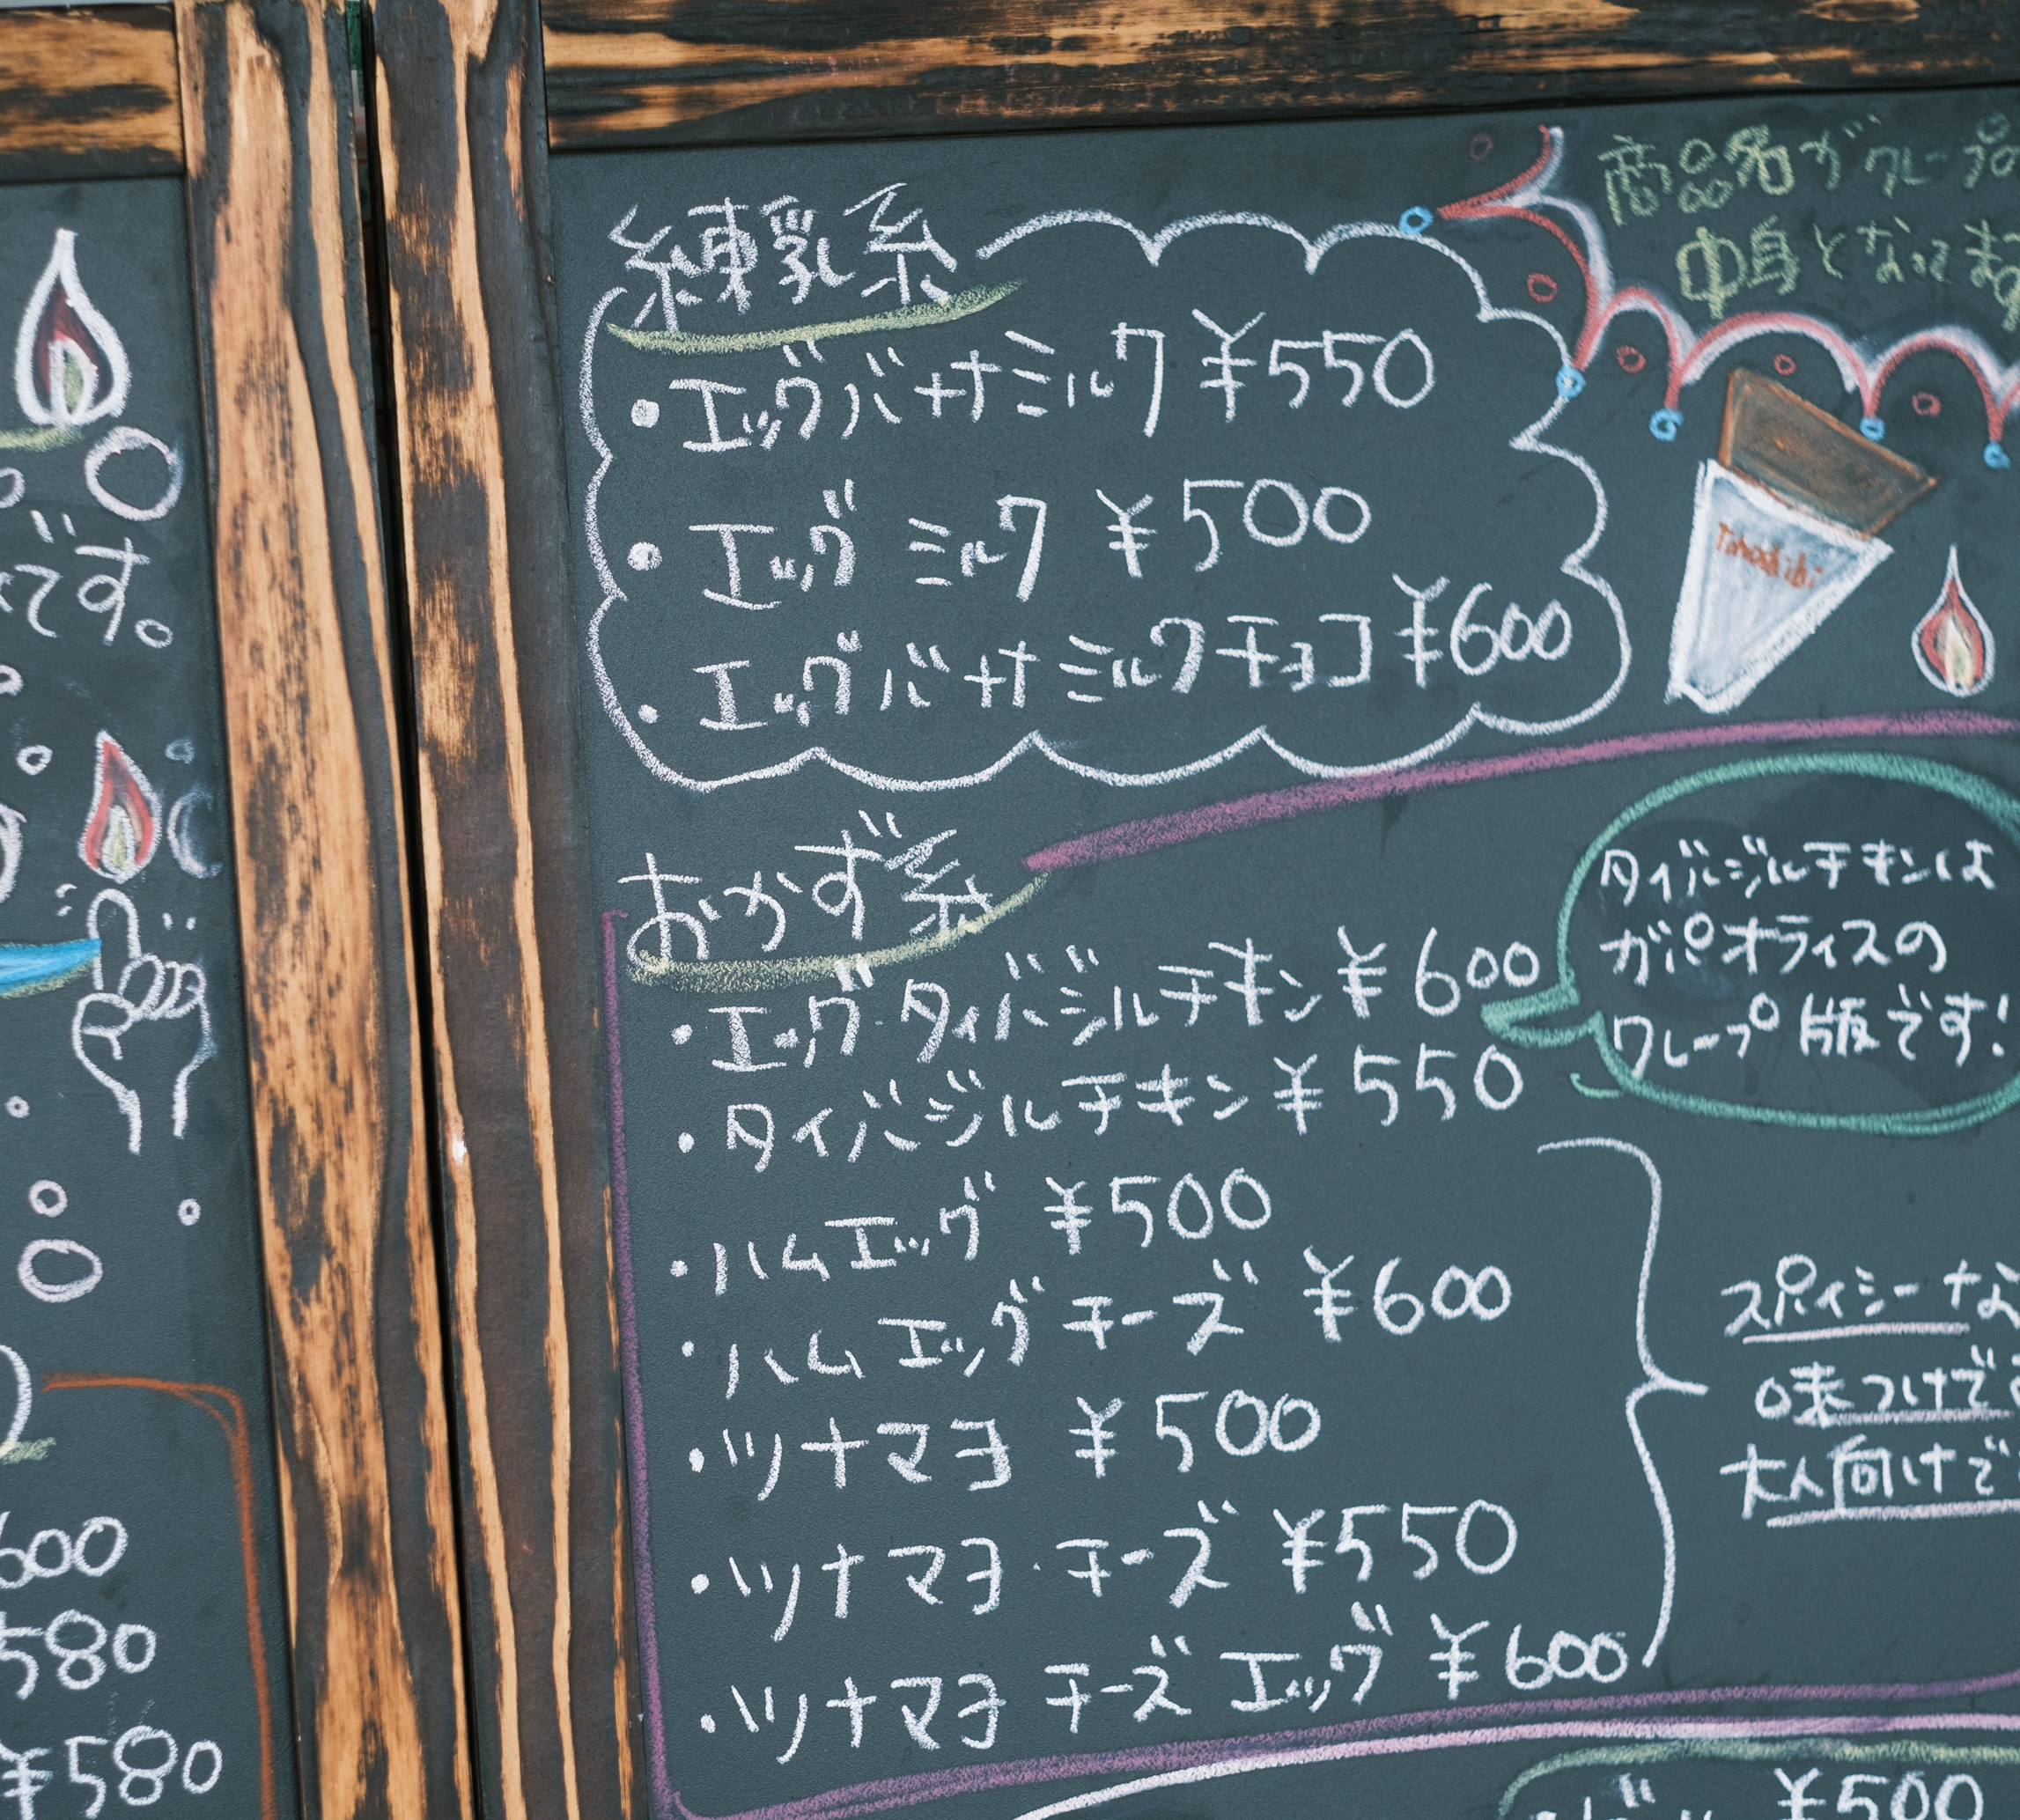 です。
600
580
¥580
練乳系
・エッグバナナミルク ¥550
・エッグ ミルク ¥500
・エッグバナナミルクチョコ ¥600
商品名がクレープの
中身となってます
おかず系
・エッグ・タイバジルチキン ¥600
・タイバジルチキン ¥550
・ハムエッグ ¥500
・ハムエッグチーズ ¥600
・ツナマヨ ¥500
・ツナマヨ・チーズ ¥550
・ツナマヨ チーズ エッグ ¥600
タイバジルチキンは
ガパオライスの
クレープ版です!
スパイシーな
味つけで
大人向けで
¥500